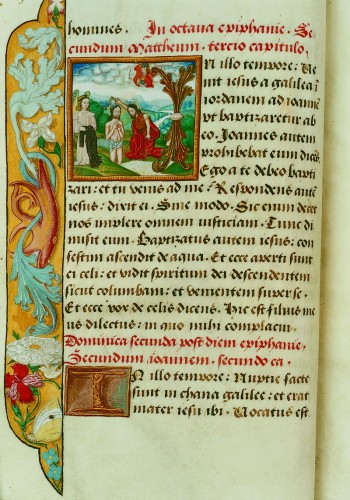 homines. In octava epiphanie. Se
cundum Mattheum. tercio capitulo
In illo tempore: Ve
nit iesus a galilea
iordanem ad ioannē
ut baptizaretur ab
eo. Joannes autem
prohibebat eum dicēs
Ego a te debeo bapti
zari: et tu venis ad me? Respondens autē
iesus: dixit ei. Sine modo. Sic enim decet
nos implere omnem iusticiam. Tunc di
misit eum. Baptizatus autem iesus: con
festim ascendit de aqua. Et ecce aperti sunt
ei celi: et vidit spiritum dei descendentem
sicut columbam: et venientem super se.
Et ecce vox de celis dicens. Hic est filius me
us dilectus: in quo mihi complacui.
Dominica secunda post diem epiphanie.
Secundum ioannem. secundo ca.
In illo tempore: Nuptie facte
sunt in chana galilee: et erat
mater iesu ibi. Vocatus est